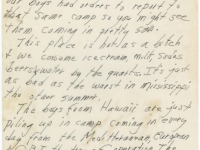 our boys had orders to report to
that same camp so you might see
them coming in pretty soon.
This place is hot as a bitch
& we consume icecream, milk, sodas
beer & water by the quarts. It's just
as bad as the worst in Mississippi
the other summer.
The boys from Hawaii are just
piling up in camp coming in every
day from the Mediterranean, European